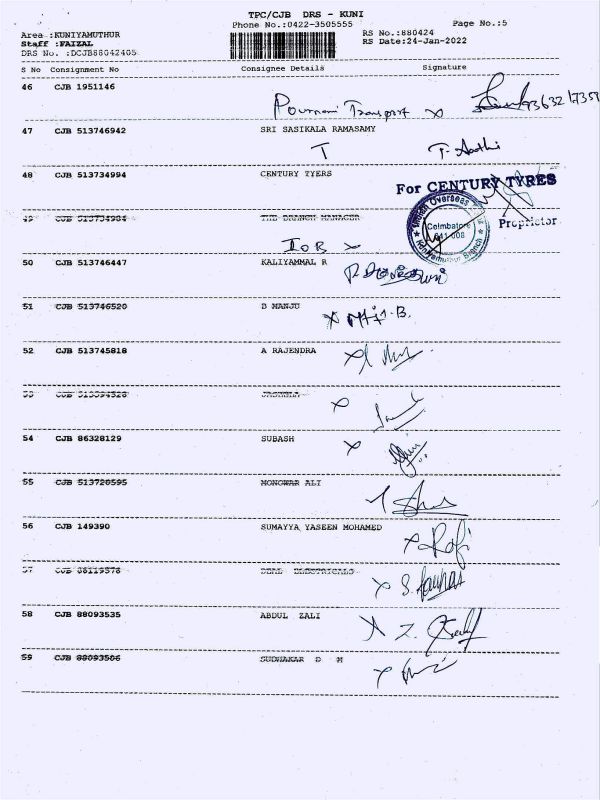 TPC/CJB DRS - KUNI
Phone No.:0422-3505555
Page No.:5
Area :KUNIYAMUTHUR
RS No.:880424
Staff :FAIZAL
RS Date:24-Jan-2022
DRS No. :DCJB88042405
S No Consignment No Consignee Details Signature
46 CJB 1951146
Pournami Transport x
47 CJB 513746942 SRI SASIKALA RAMASAMY
T
48 CJB 513734994 CENTURY TYERS
For CENTURY TYRES
Proprietor
49 THE BRANCH MANAGER
IOB x
Overseas
Coimbatore
641 008
Kuniyamuthur Branch
50 CJB 513746447 KALIYAMMAL R
51 CJB 513746520 B MANJU
52 CJB 513745818 A RAJENDRA
53 CJB
54 CJB 86328129 SUBASH
55 CJB 513720595 MONOWAR ALI
56 CJB 149390 SUMAYYA YASEEN MOHAMED
x Rafi
57 CJB DEAL ELECTRICALS
58 CJB 88093535 ABDUL ZALI
59 CJB 88093506 SUDHAKAR D M